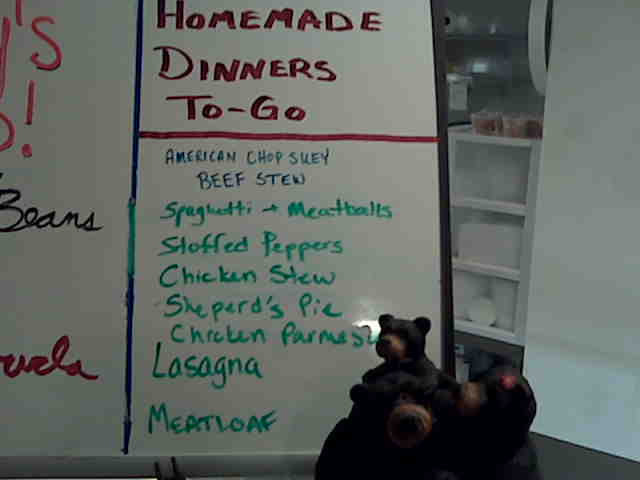 HOMEMADE
DINNERS
TO-GO
AMERICAN CHOP SUEY
BEEF STEW
Spaghetti + Meatballs
Stoffed Peppers
Chicken Stew
Sheperd's Pie
Chicken Parmes
Lasagna
MEATLOAF
'S
!
Beans